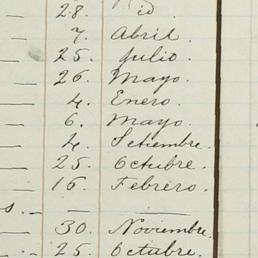 28. id
7. Abril.
25. Julio.
26. Mayo.
4. Enero.
6. Mayo.
4. Setiembre.
25. Octubre.
16. Febrero.
s. —
30. Noviembre.
25. Octubre.